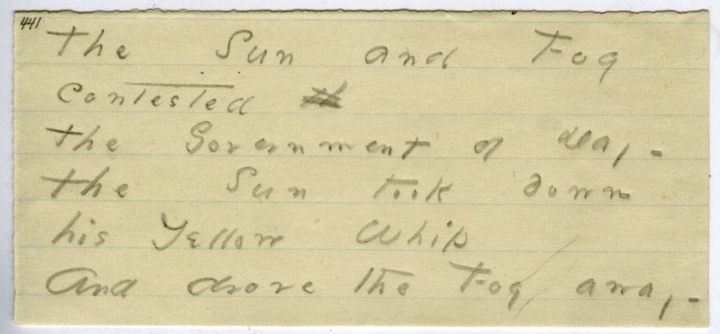 441
The Sun and Fog
contested th
The Government of Day -
The Sun took down
his Yellow Whip
And drove the Fog away -